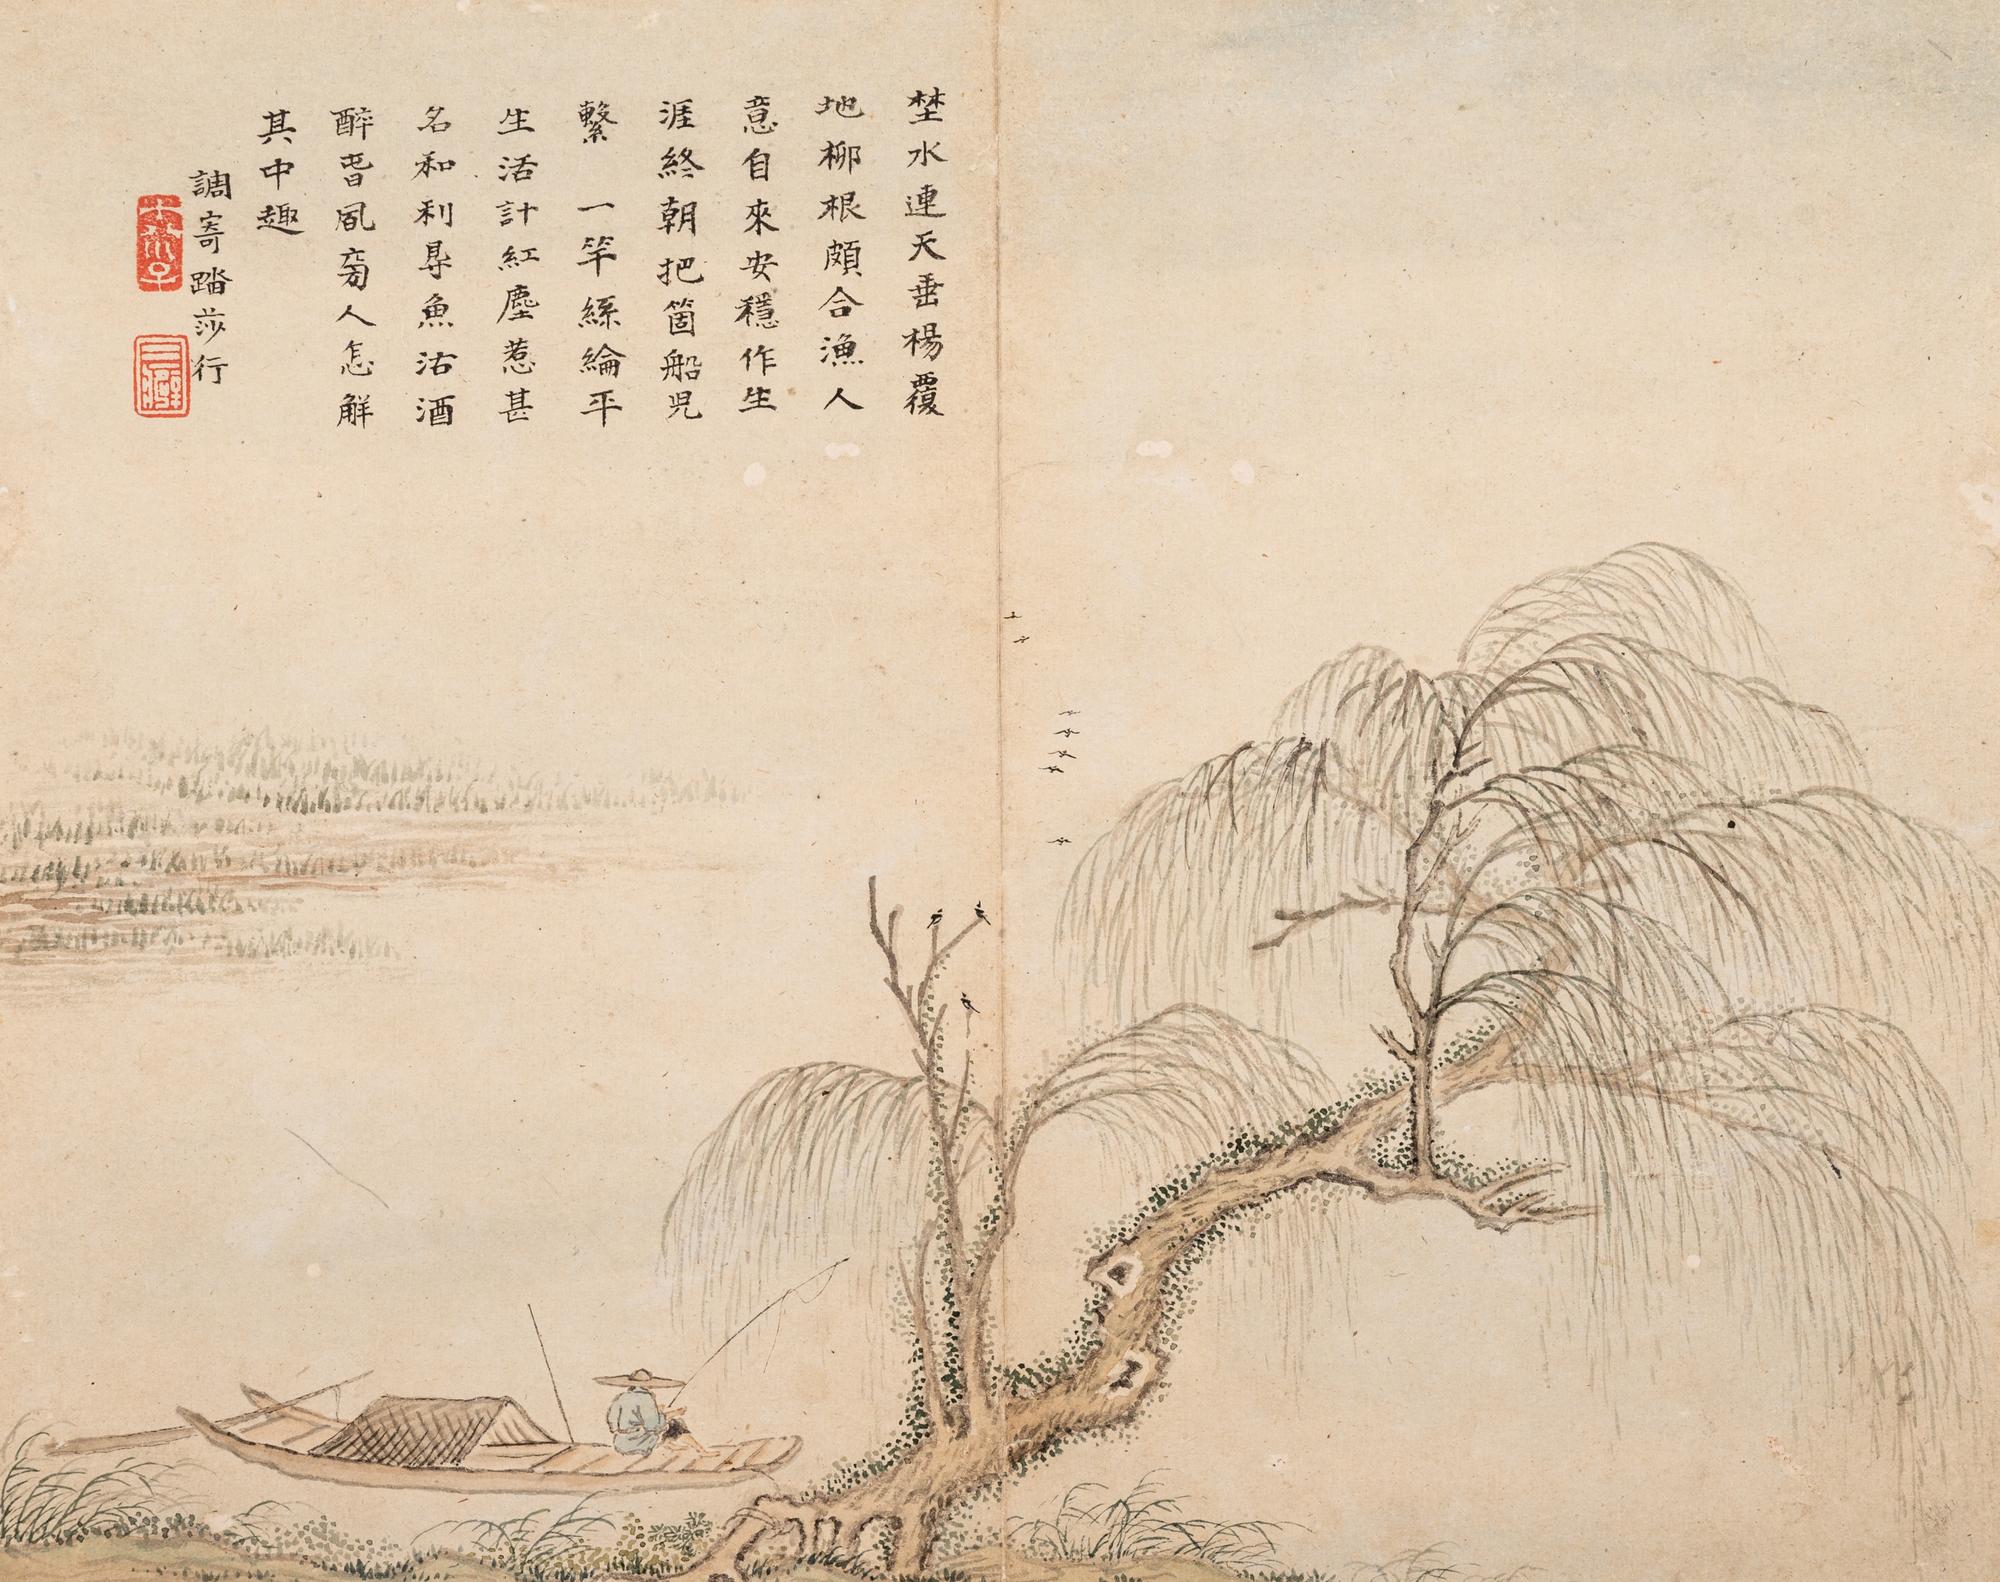 埜水連天垂楊覆
地柳根頗合漁人
意自來安穩作生
涯終朝把箇船児
繫一竿絲綸平
生活計紅塵惹甚
名和利尋魚沽酒
醉時風前人怎解
其中趣
調寄踏莎行